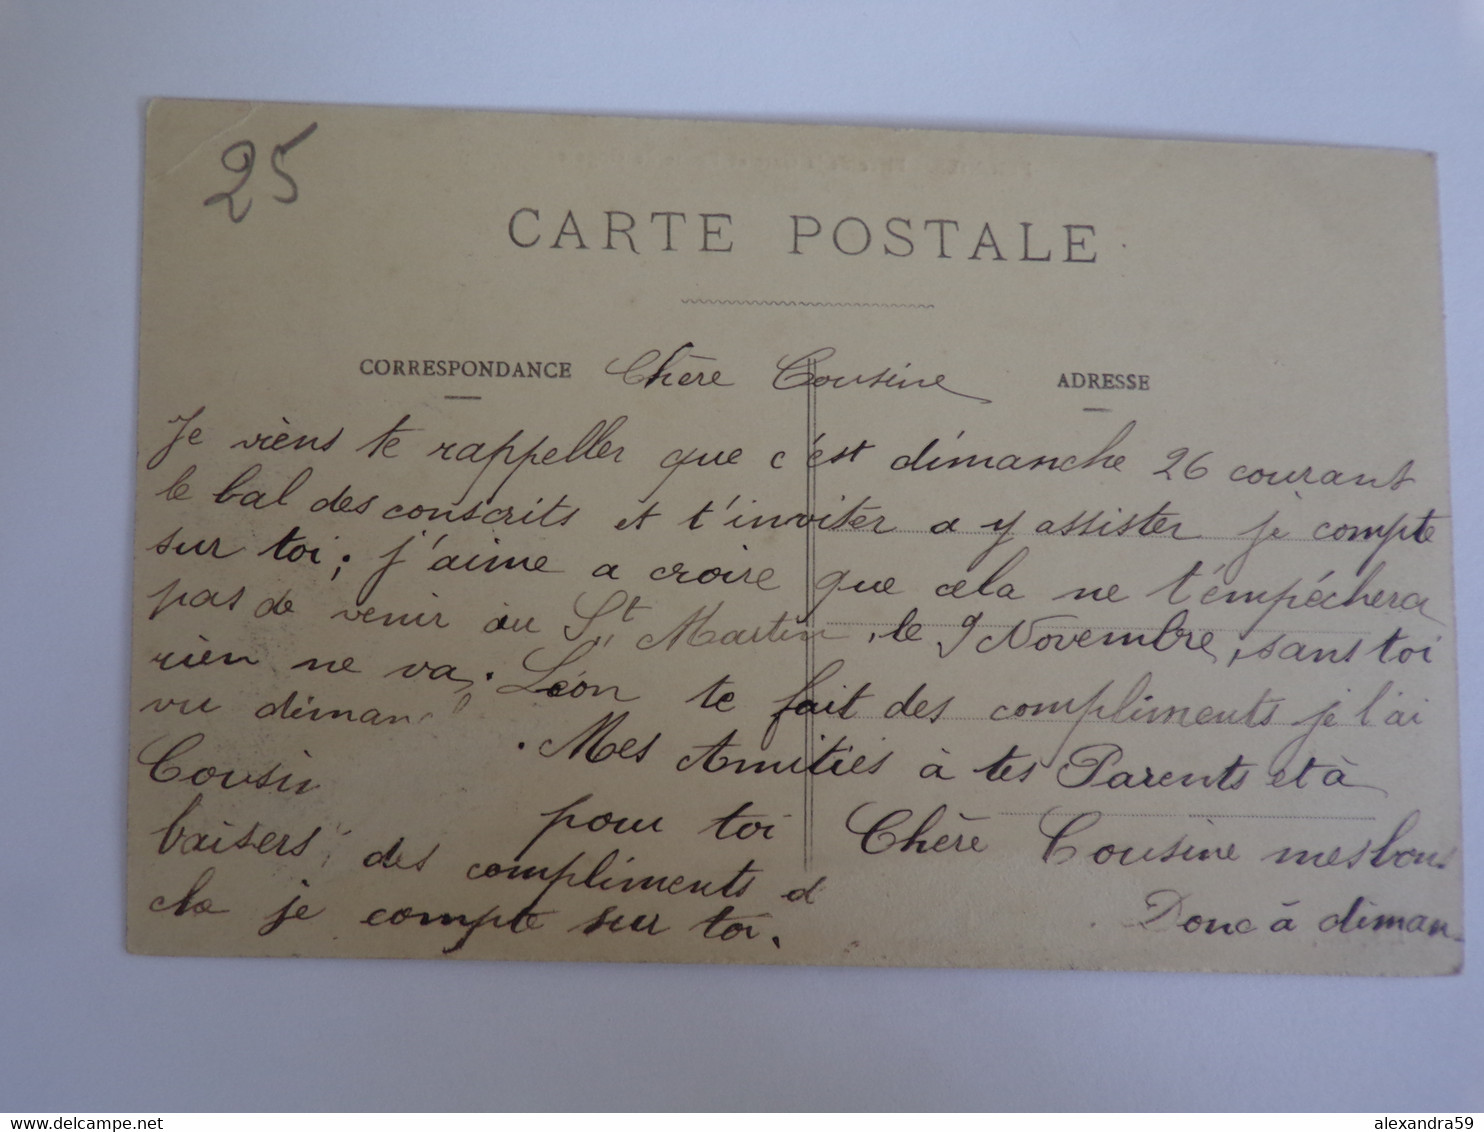 25
CARTE POSTALE
CORRESPONDANCE Chère Cousine ADRESSE
Je viens te rappeller que c'est dimanche 26 courant
le bal des conscrits et t'inviter a y assister je compte
sur toi; j'aime a croire que cela ne t'empéchera
pas de venir au St Martin, le 9 Novembre, sans toi
rien ne va. Léon te fait des compliments je l'ai
vu diman
. Mes Amitiés à tes Parents et à
Cousin
pour toi Chère Cousine mes bons
baisers des compliments d
Donc à diman_
che je compte sur toi.
delcampe.net
alexandra59